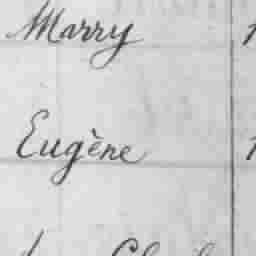 Marry 1
Eugène 1